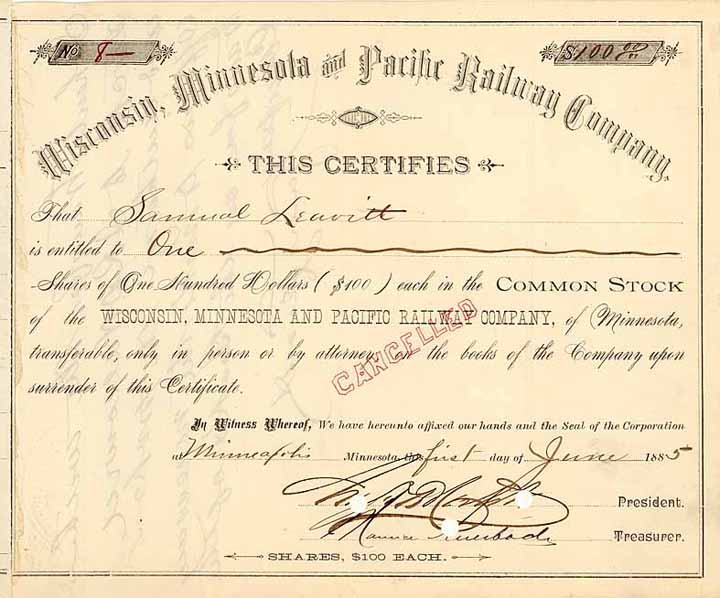 No 8—
$100 00/00
Wisconsin, Minnesota and Pacific Railway Company,
THIS CERTIFIES
That Samuel Leavitt
is entitled to One
Shares of One Hundred Dollars ( $100 ) each in the COMMON STOCK
of the WISCONSIN, MINNESOTA AND PACIFIC RAILWAY COMPANY, of Minnesota,
CANCELLED
transferable, only in person or by attorney on the books of the Company upon
surrender of this Certificate.
In Witness Whereof, We have hereunto affixed our hands and the Seal of the Corporation
at Minneapolis Minnesota this first day of June 1885
President.
Maurice Treasurer.
SHARES, $100 EACH.